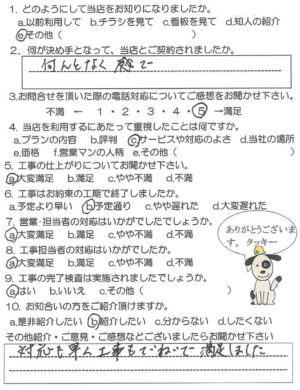 1. どのようにして当店をお知りになりましたか。
a.以前利用して b.チラシを見て c.看板を見て d.知人の紹介
e.その他（ ）
2. 何が決め手となって、当店とご契約されましたか。
何んとなく 感で
3.お問合せを頂いた際の電話対応についてご感想をお聞かせ下さい。
不満 ← 1・2・3・4・5→満足
4. 当店を利用するにあたって重視したことは何ですか。
a.プランの内容 b.評判 c.サービスや対応のよさ d.当社の場所
e.価格 f.営業マンの人柄 e.その他（ ）
5. 工事の仕上がりについてお聞かせ下さい。
a大変満足 b.満足 c.やや不満 d.不満
6. 工事はお約束の工期で終了しましたか。
a.予定より早い b予定通り c.やや遅れた d.大変遅れた
7. 営業・担当者の対応はいかがでしたでしょうか。
a大変満足 b.満足 c.やや不満 d.不満
8. 工事担当者の対応はいかがでしたか。
a大変満足 b.満足 c.やや不満 d.不満
9. 工事の完了検査は実施されましたでしょうか。
aはい b.いいえ c.その他（ ）
10. お知合いの方をご紹介頂けますか。
a.是非紹介したい b紹介したい c.分からない d.したくない
その他紹介・ご意見・ご感想などございましたらお聞かせ下さい
対応も 工事もていねいで 満足しました
ありがとうございま
す。 タッキー